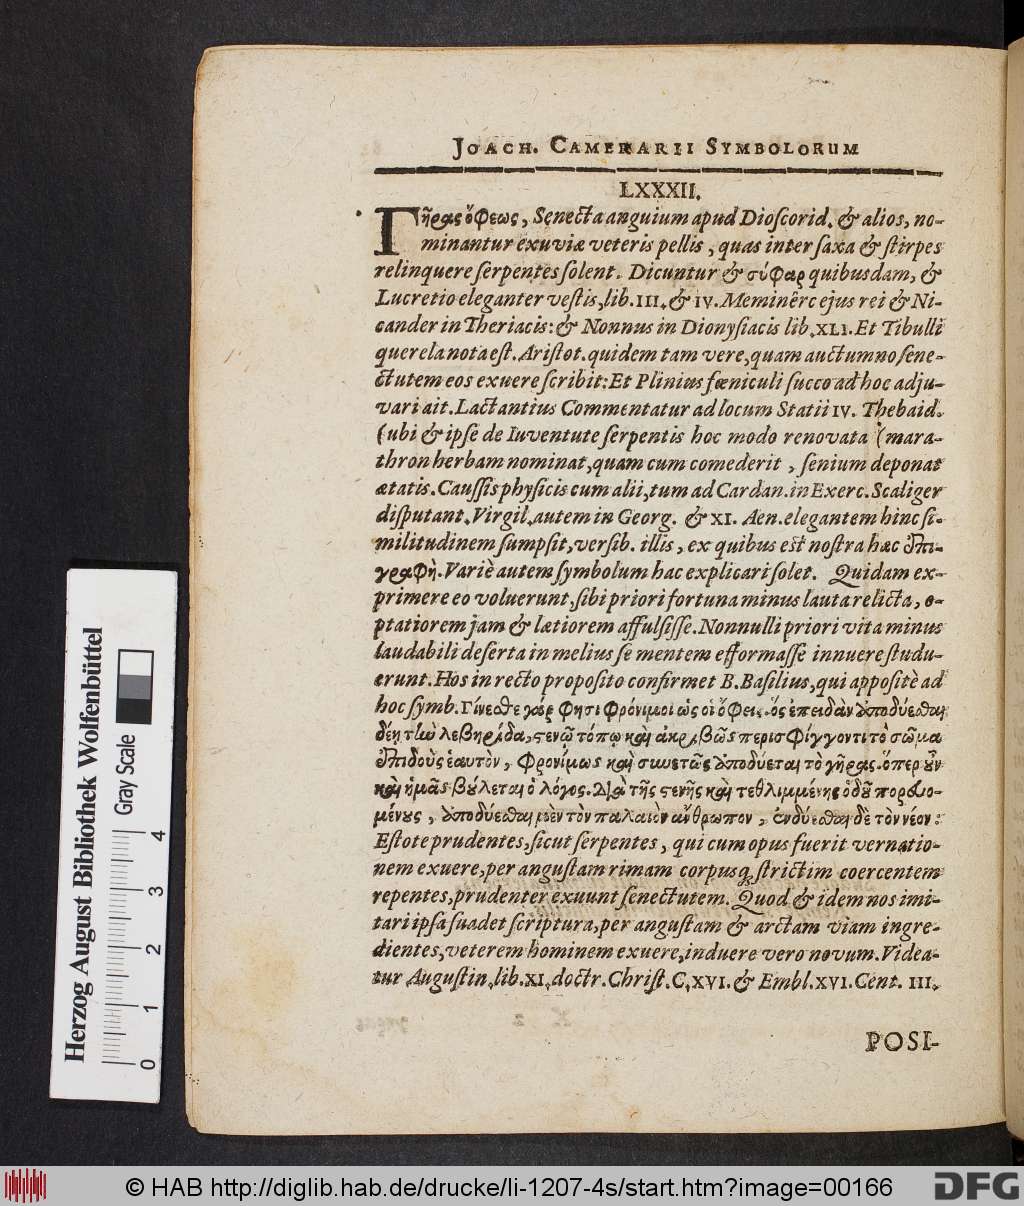 JOACH. CAMERARII SYMBOLORUM
LXXXII.
Γῆρας ὄφεως, Senecta anguium apud Dioscorid. & alios, no-
minantur exuviæ veteris pellis, quas inter saxa & stirpes
relinquere serpentes solent. Dicuntur & σύφαρ quibusdam, &
Lucretio eleganter vestis, lib. III. & IV. Meminêre ejus rei & Ni-
cander in Theriacis: & Nonnus in Dionysiacis lib. XLI. Et Tibulli
querela nota est. Aristot. quidem tam vere, quam auctumno sene-
ctutem eos exuere scribit: Et Plinius fœniculi succo ad hoc adju-
vari ait. Lactantius Commentatur ad locum Statii IV. Thebaid.
(ubi & ipse de Iuventute serpentis hoc modo renovata (mara-
thron herbam nominat, quam cum comederit, senium deponat
ætatis. Caussis physicis cum alii, tum ad Cardan. in Exerc. Scaliger
disputant. Virgil. autem in Georg. & XI. Aen. elegantem hinc si-
militudinem sumpsit, versib. illis, ex quibus est nostra hæc ἐπι-
γραφή. Variè autem symbolum hac explicari solet. Quidam ex-
primere eo voluerunt, sibi priori fortuna minus lauta relicta, o-
ptatiorem jam & lætiorem affulsisse. Nonnulli priori vita minus
laudabili deserta in melius se mentem efformasse innuere studu-
erunt. Hos in recto proposito confirmet B. Basilius, qui appositè ad
hoc symb. Γίνεσθε γάρ φησι φρόνιμοι ὡς οἱ ὄφεις. ὃς ἐπειδὰν ἀποδύεσθαι
δέῃ τὴν λεβηρίδα, στενῷ τόπῳ καὶ ἀκριβῶς περισφίγγοντι τὸ σῶμα
ἐπιδοὺς ἑαυτὸν, φρονίμως καὶ συνετῶς ἀποδύεται τὸ γῆρας. ὅπερ οὖν
καὶ ἡμᾶς βούλεται ὁ λόγος. Διὰ τῆς στενῆς καὶ τεθλιμμένης ὁδοῦ πορευο-
μένους, ἀποδύεσθαι μὲν τὸν παλαιὸν ἄνθρωπον, ἐνδύεσθαι δὲ τὸν νέον:
Estote prudentes, sicut serpentes, qui cum opus fuerit vernatio-
nem exuere, per angustam rimam corpusq; strictim coercentem
repentes, prudenter exuunt senectutem. Quod & idem nos imi-
tari ipsa suadet scriptura, per angustam & arctam viam ingre-
dientes, veterem hominem exuere, induere vero novum. Videa-
tur Augustin. lib. XI. doctr. Christ. C. XVI. & Embl. XVI. Cent. III.
POSI-
Herzog August Bibliothek Wolfenbüttel
Gray Scale
0 1 2 3 4
© HAB http://diglib.hab.de/drucke/li-1207-4s/start.htm?image=00166
DFG